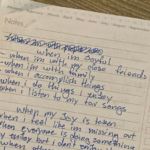 Notes
when im Joyful
when im with my close friends
when im with family
when i accomplish things
when i do things i love
when i listen to my fav songs
When my Joy is taken
when i feel like im missing out
when everyone is doing something
today but i don't